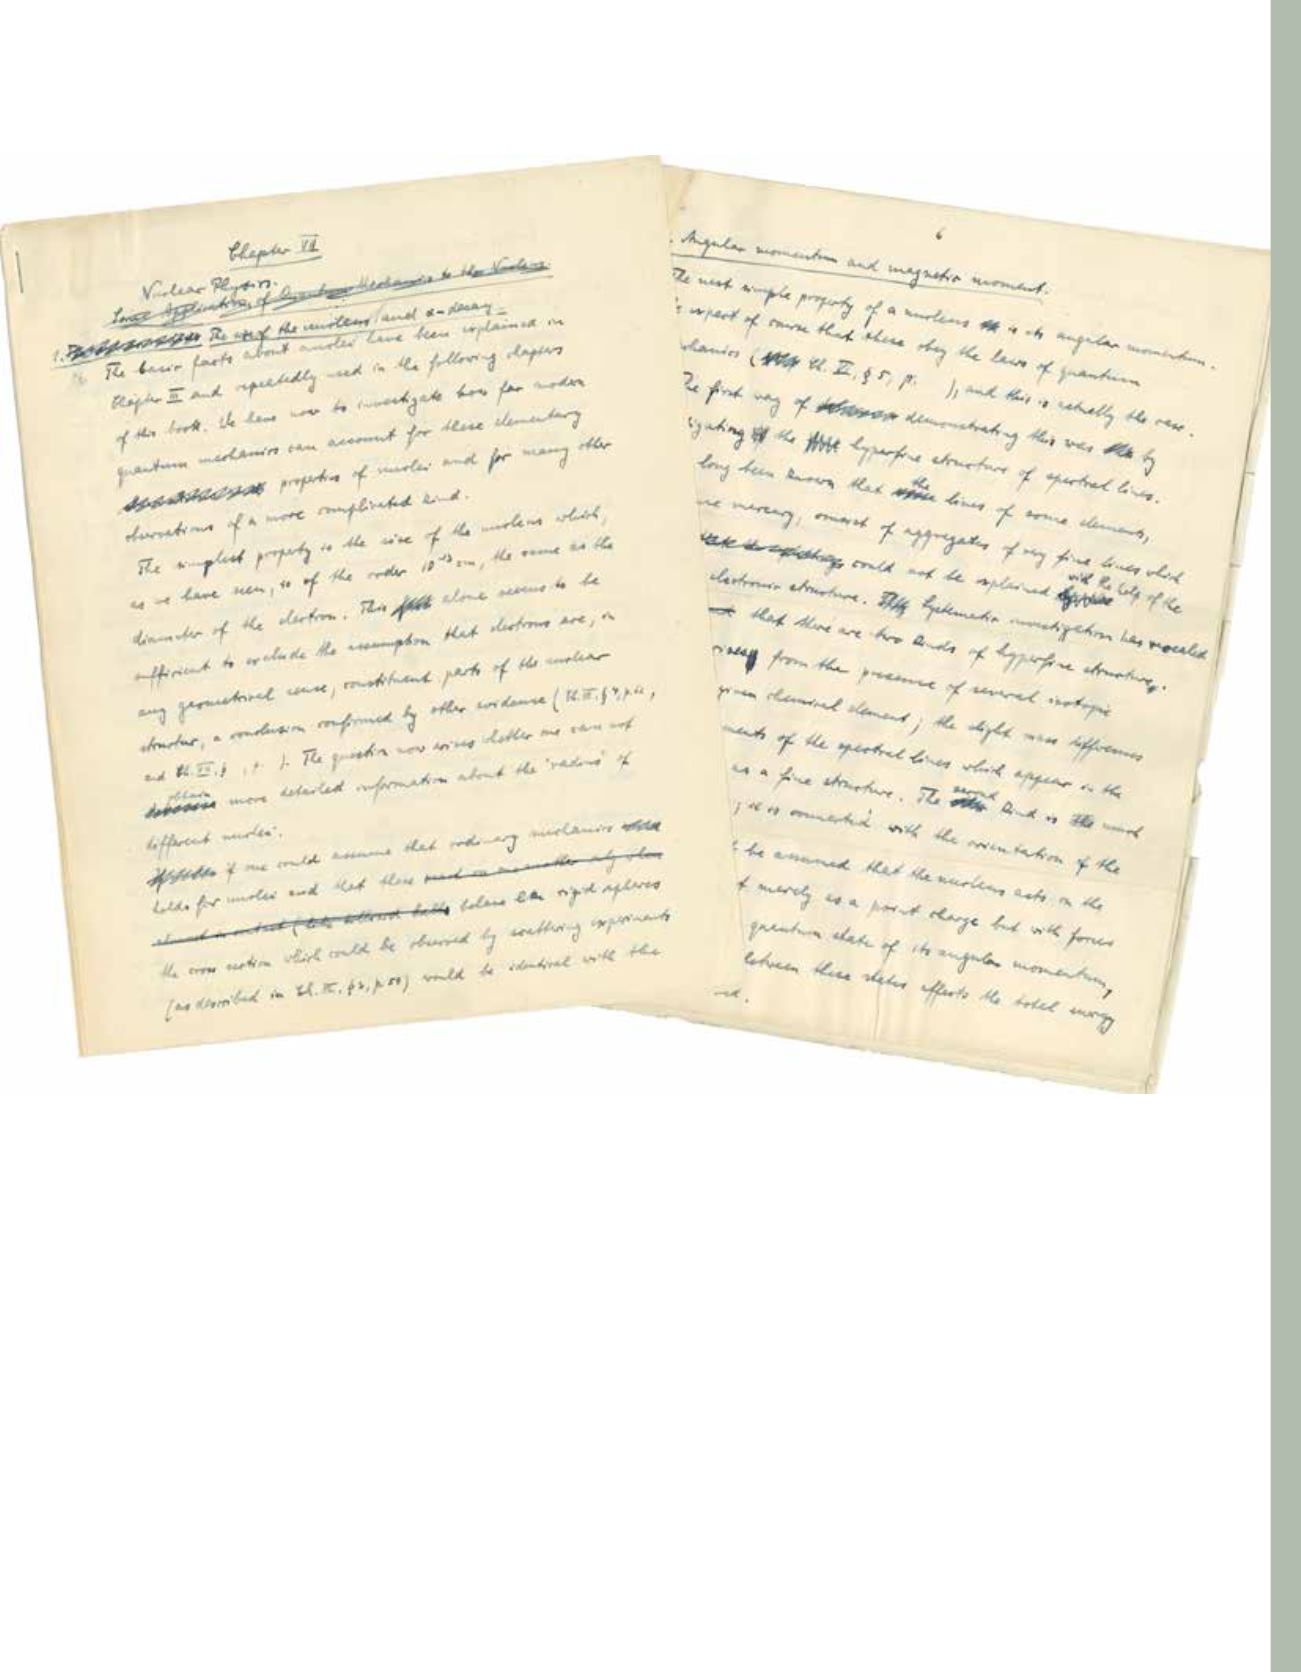 Chapter VII
Nuclear Physics.
Some Applications of Quantum Mechanics to the Nucleus.
1. The size of the nucleus and α-decay
The basic facts about nuclei have been explained in
Chapter III and repeatedly used in the following chapters
of this book. We have now to investigate how far modern
quantum mechanics can account for these elementary
properties of nuclei and for many other
observations of a more complicated kind.
The simplest property is the size of the nucleus which,
as we have seen, is of the order 10⁻¹³ cm, the same as the
diameter of the electron. This alone seems to be
sufficient to exclude the assumption that electrons are, in
any geometrical sense, constituent parts of the nuclear
structur, a conclusion confirmed by other evidence (Ch. III, § 4, p. 62,
and Ch. III, § , p. ). The question now arises whether one can not
obtain more detailed information about the 'radius' of
different nuclei.
if one could assume that ordinary mechanics
holds for nuclei and that these
behave like rigid spheres
the cross section which could be observed by scattering experiments
(as described in Ch. III, § 2, p. 50) would be identical with the
6
Angular momentum and magnetic moment.
The next simple property of a nucleus is its angular momentum.
expect of course that these obey the laws of quantum
chanics ( Ch. IV, § 5, p. ), and this is actually the case.
The first way of demonstrating this was by
igating the hyperfine structure of spectral lines.
long been known that the lines of some elements,
mercury, consist of aggregates of very fine lines which
could not be explained with the help of the
electronic structure. Systematic investigation has revealed
that there are two kinds of hyperfine structure.
from the presence of several isotopic
given chemical element; the slight mass differences
ments of the spectral lines which appear in the
as a fine structure. The second kind is much
; it is connected with the orientation of the
be assumed that the nucleus acts on the
t merely as a point charge but with forces
quantum state of its angular momentum,
between these states affects the total energy
ed.